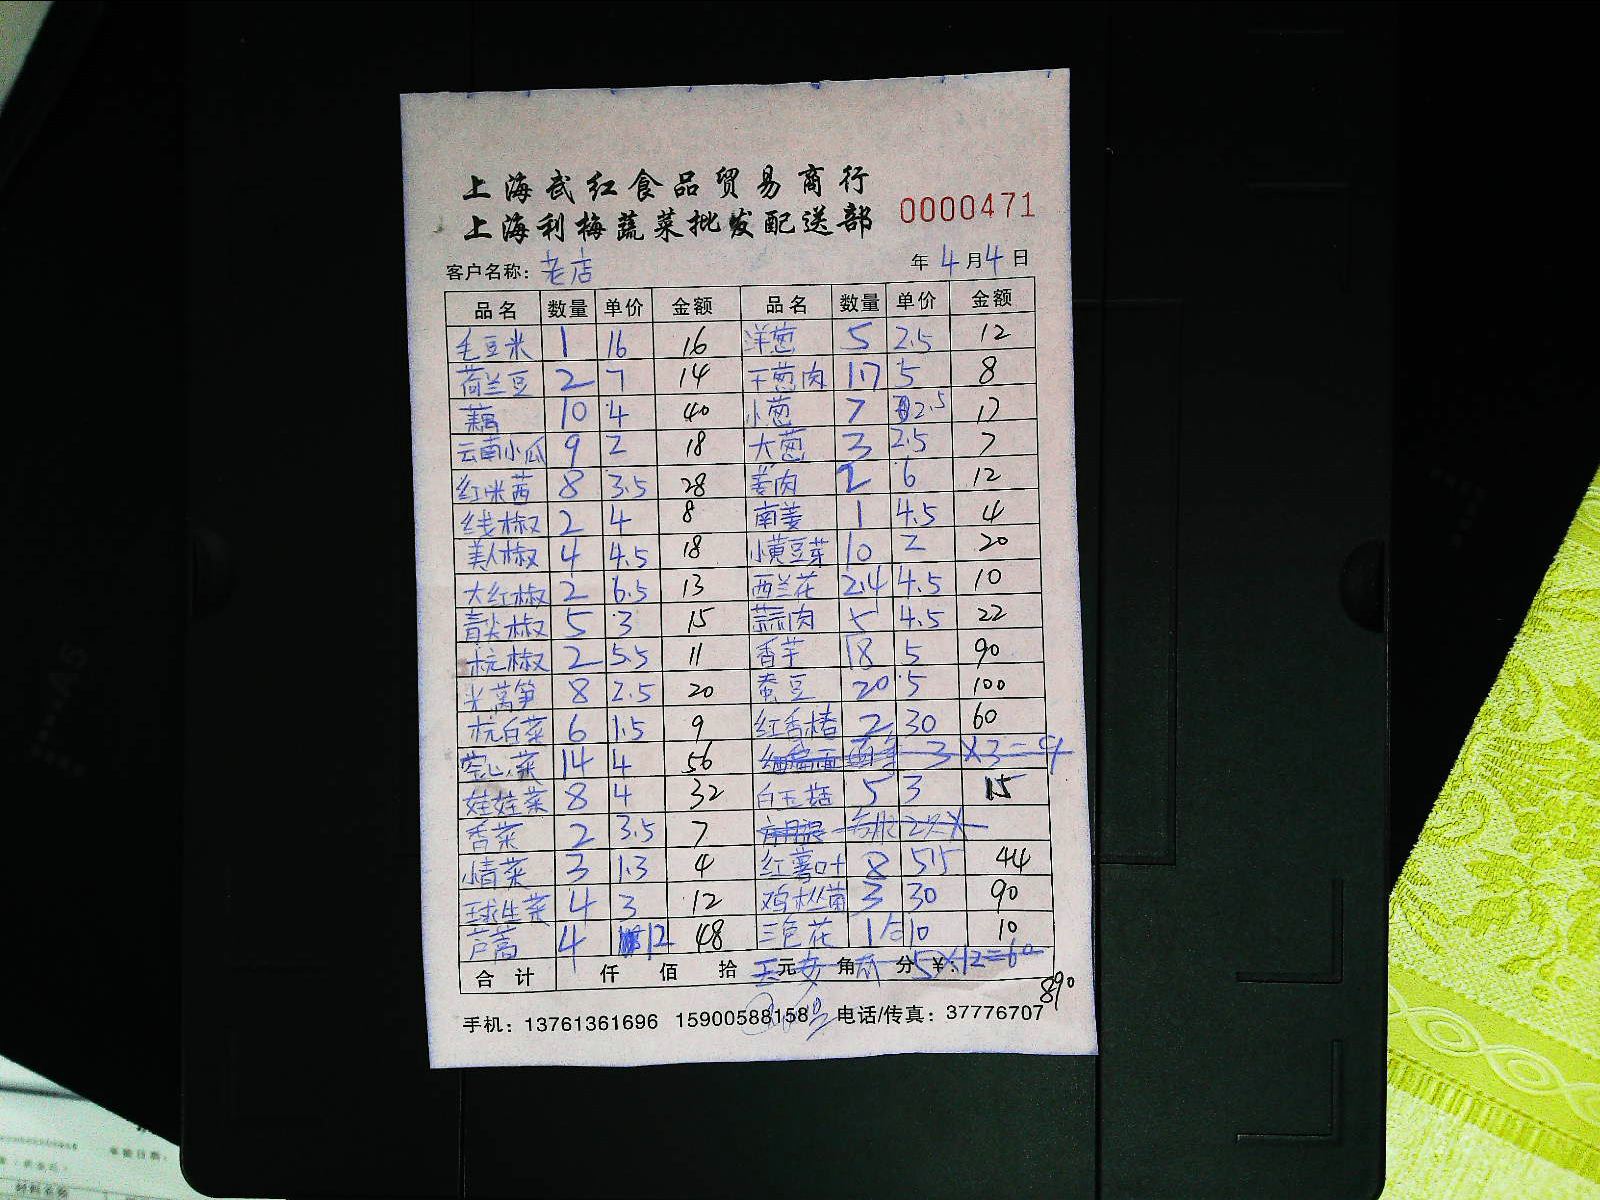 上海武红食品贸易商行
上海利梅蔬菜批发配送部 0000471
客户名称: 老店 年 4 月 4 日
品名 数量 单价 金额 品名 数量 单价 金额
毛豆米 1 16 16 洋葱 5 2.5 12
荷兰豆 2 7 14 干葱肉 1.7 5 8
藕 10 4 40 小葱 7 2.5 17
云南小瓜 9 2 18 大葱 3 2.5 7
红米茜 8 3.5 28 姜肉 2 6 12
线椒 2 4 8 南姜 1 4.5 4
美人椒 4 4.5 18 小黄豆芽 10 2 20
大红椒 2 6.5 13 西兰花 2.4 4.5 10
青尖椒 5 3 15 蒜肉 5 4.5 22
杭椒 2 5.5 11 香芋 18 5 90
米莴笋 8 2.5 20 蚕豆 20 5 100
杭白菜 6 1.5 9 红香椿 2 30 60
空心菜 14 4 56 3×3=9
娃娃菜 8 4 32 白玉菇 5 3 15
香菜 2 3.5 7
情菜 3 1.3 4 红薯叶 8 5.5 44
球生菜 4 3 12 鸡枞菌 3 30 90
芦蒿 4 12 48 三色花 1 10 10
合计 仟 佰 拾 元 角 分 ¥: 5×12=60
890
手机: 13761361696 15900588158 电话/传真: 37776707